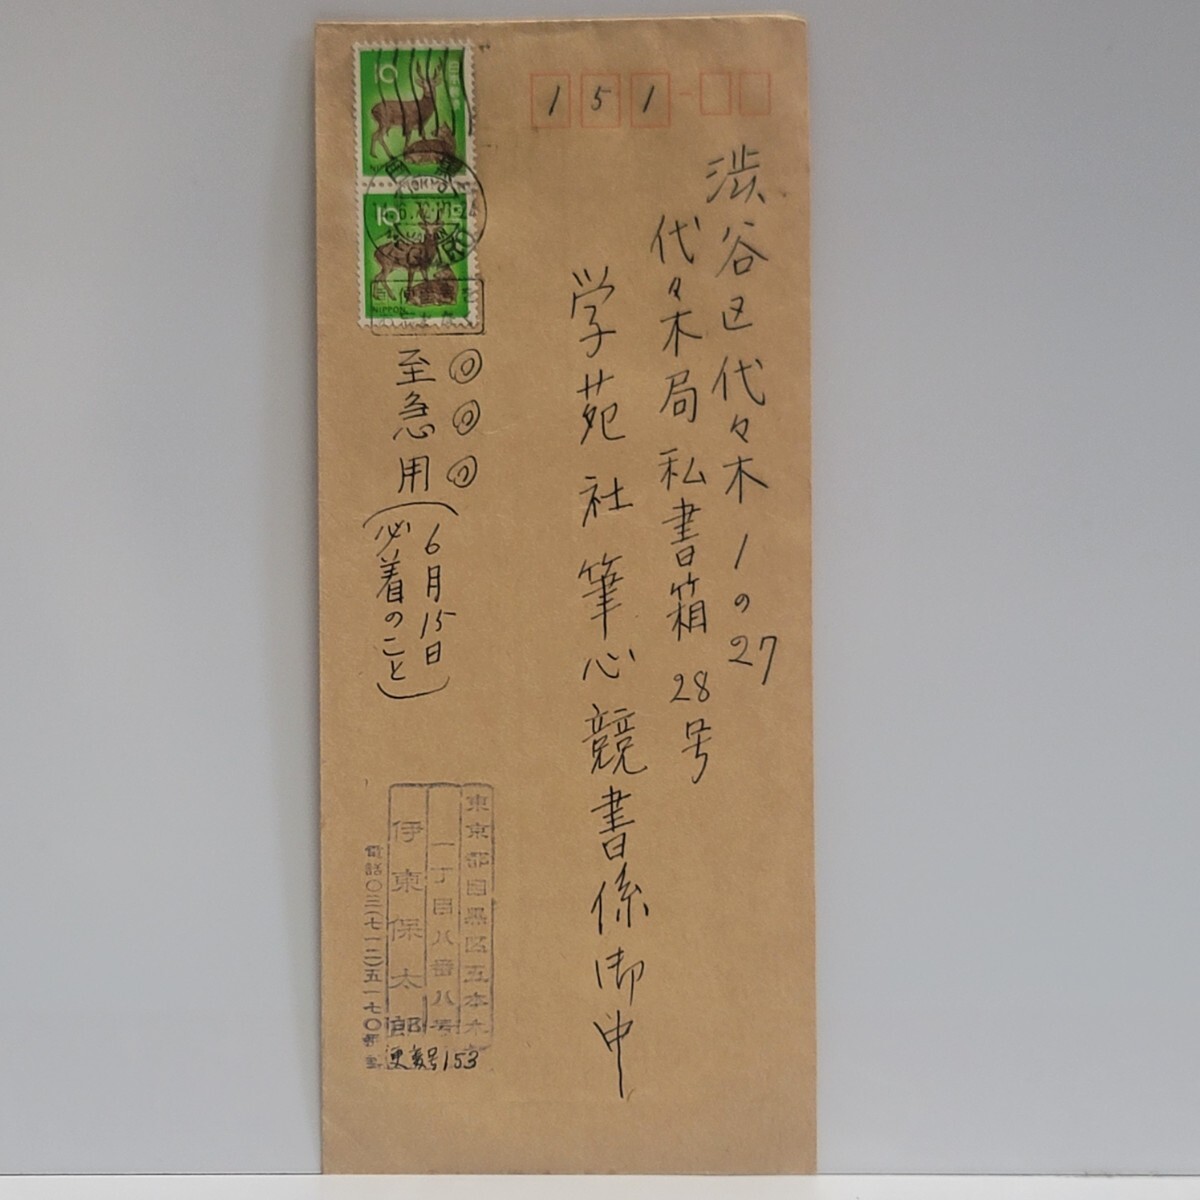 151
渋谷区代々木1の27
代々木局私書箱28号
学苑社筆心競書係御中
10
日本郵便
10
NIPPON
至急用
6月15日
必着のこと
東京都目黒区五本木
一丁目八番八号
伊東保太郎
電話〇三(七一二)五一七〇番
153